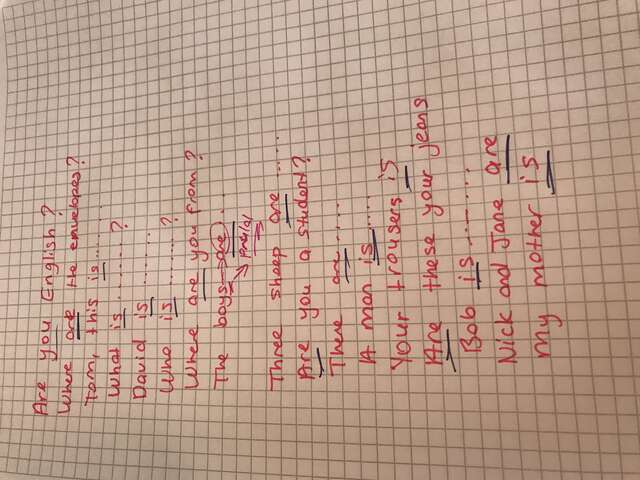 Are you English?
Where are the envelopes?
Tom, this is.......
What is.......?
David is......
Who is.......?
Where are you from?
The boys are..
Three sheep are.....
Are you a student?
There are....
A man is....
Your trousers is
Are these your jeans
Bob is.......
Nick and Jane are
My mother is